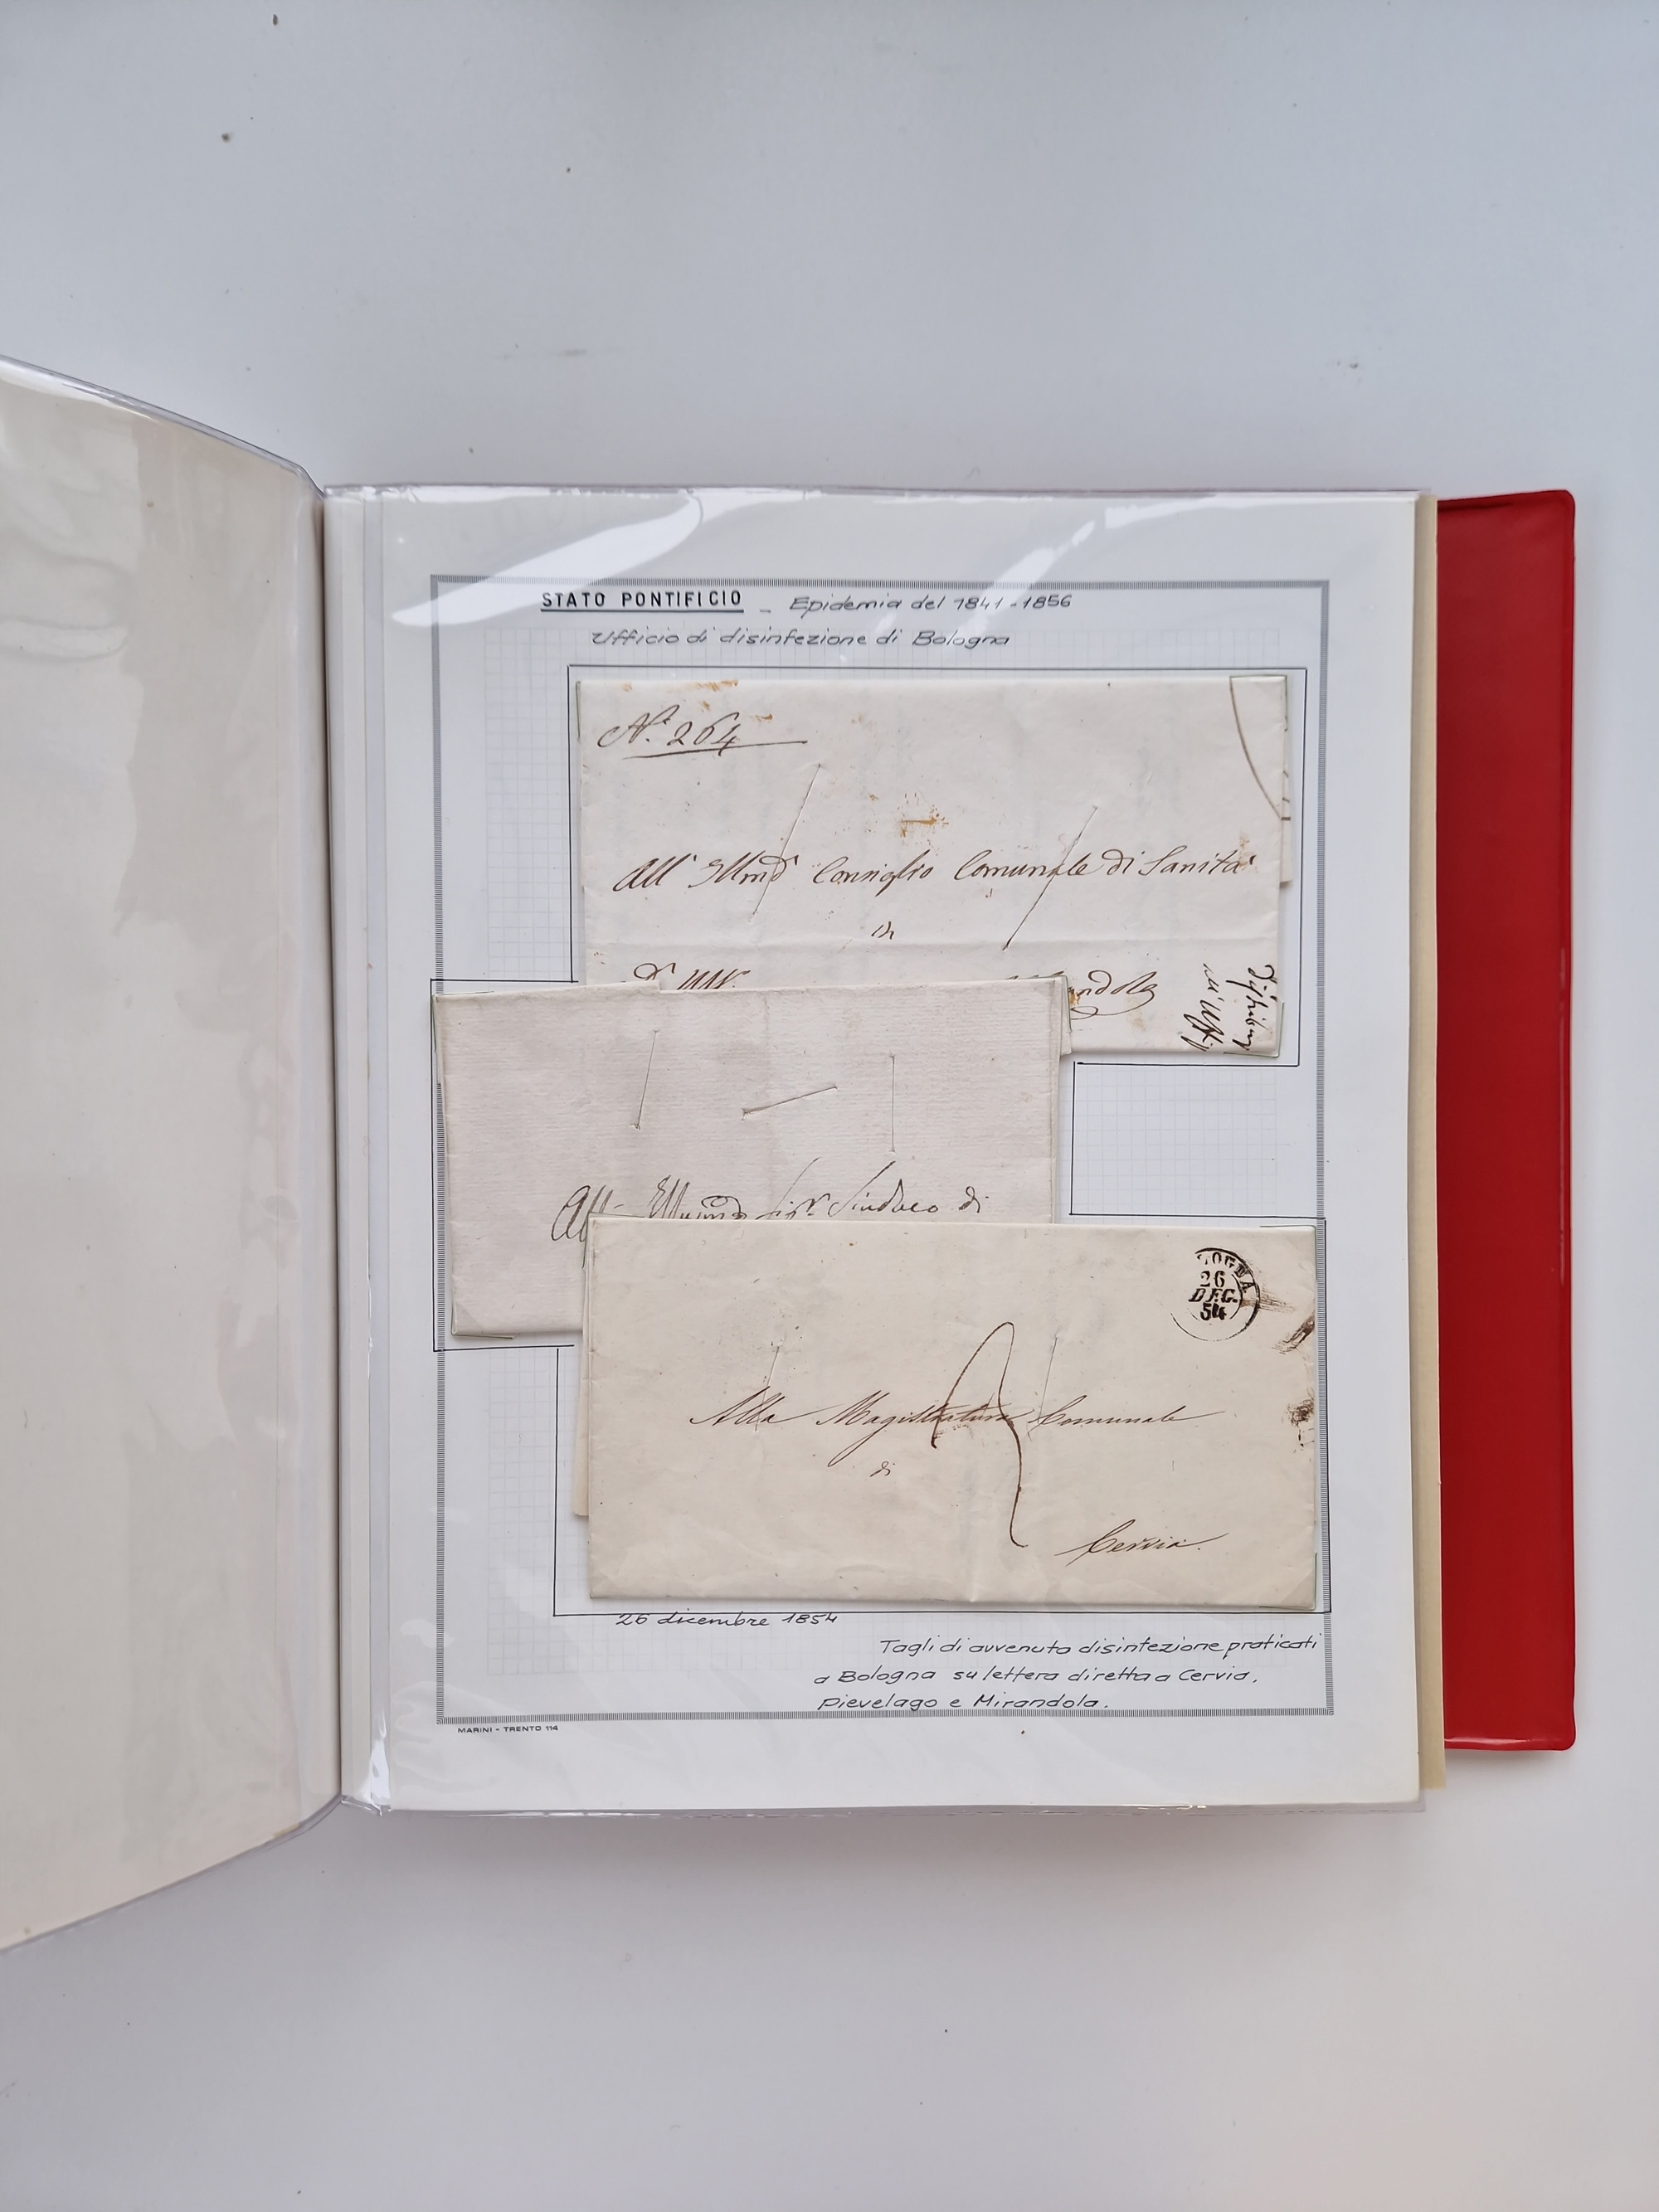 STATO PONTIFICIO - Epidemia del 1841-1856
Ufficio di disinfezione di Bologna
N.° 264
All' Illmo Consiglio Comunale di Sanità
di
All' Illmo Sigr Sindaco di
OGNA
26
DEC.
54
2
Alla Magistratura Comunale
di
Cervia.
26 dicembre 1854
Tagli di avvenuta disinfezione praticati
a Bologna su lettera diretta a Cervia,
Pievelago e Mirandola.
MARINI - TRENTO 114